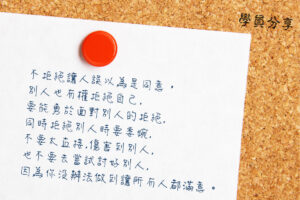 學員分享
不拒絕讓人誤以為是同意。
別人也有權拒絕自己,
要能勇於面對別人的拒絕,
同時拒絕別人時要委婉,
不要太直接,傷害到別人,
也不要去嘗試討好別人,
因為你沒辦法做到讓所有人都滿意。